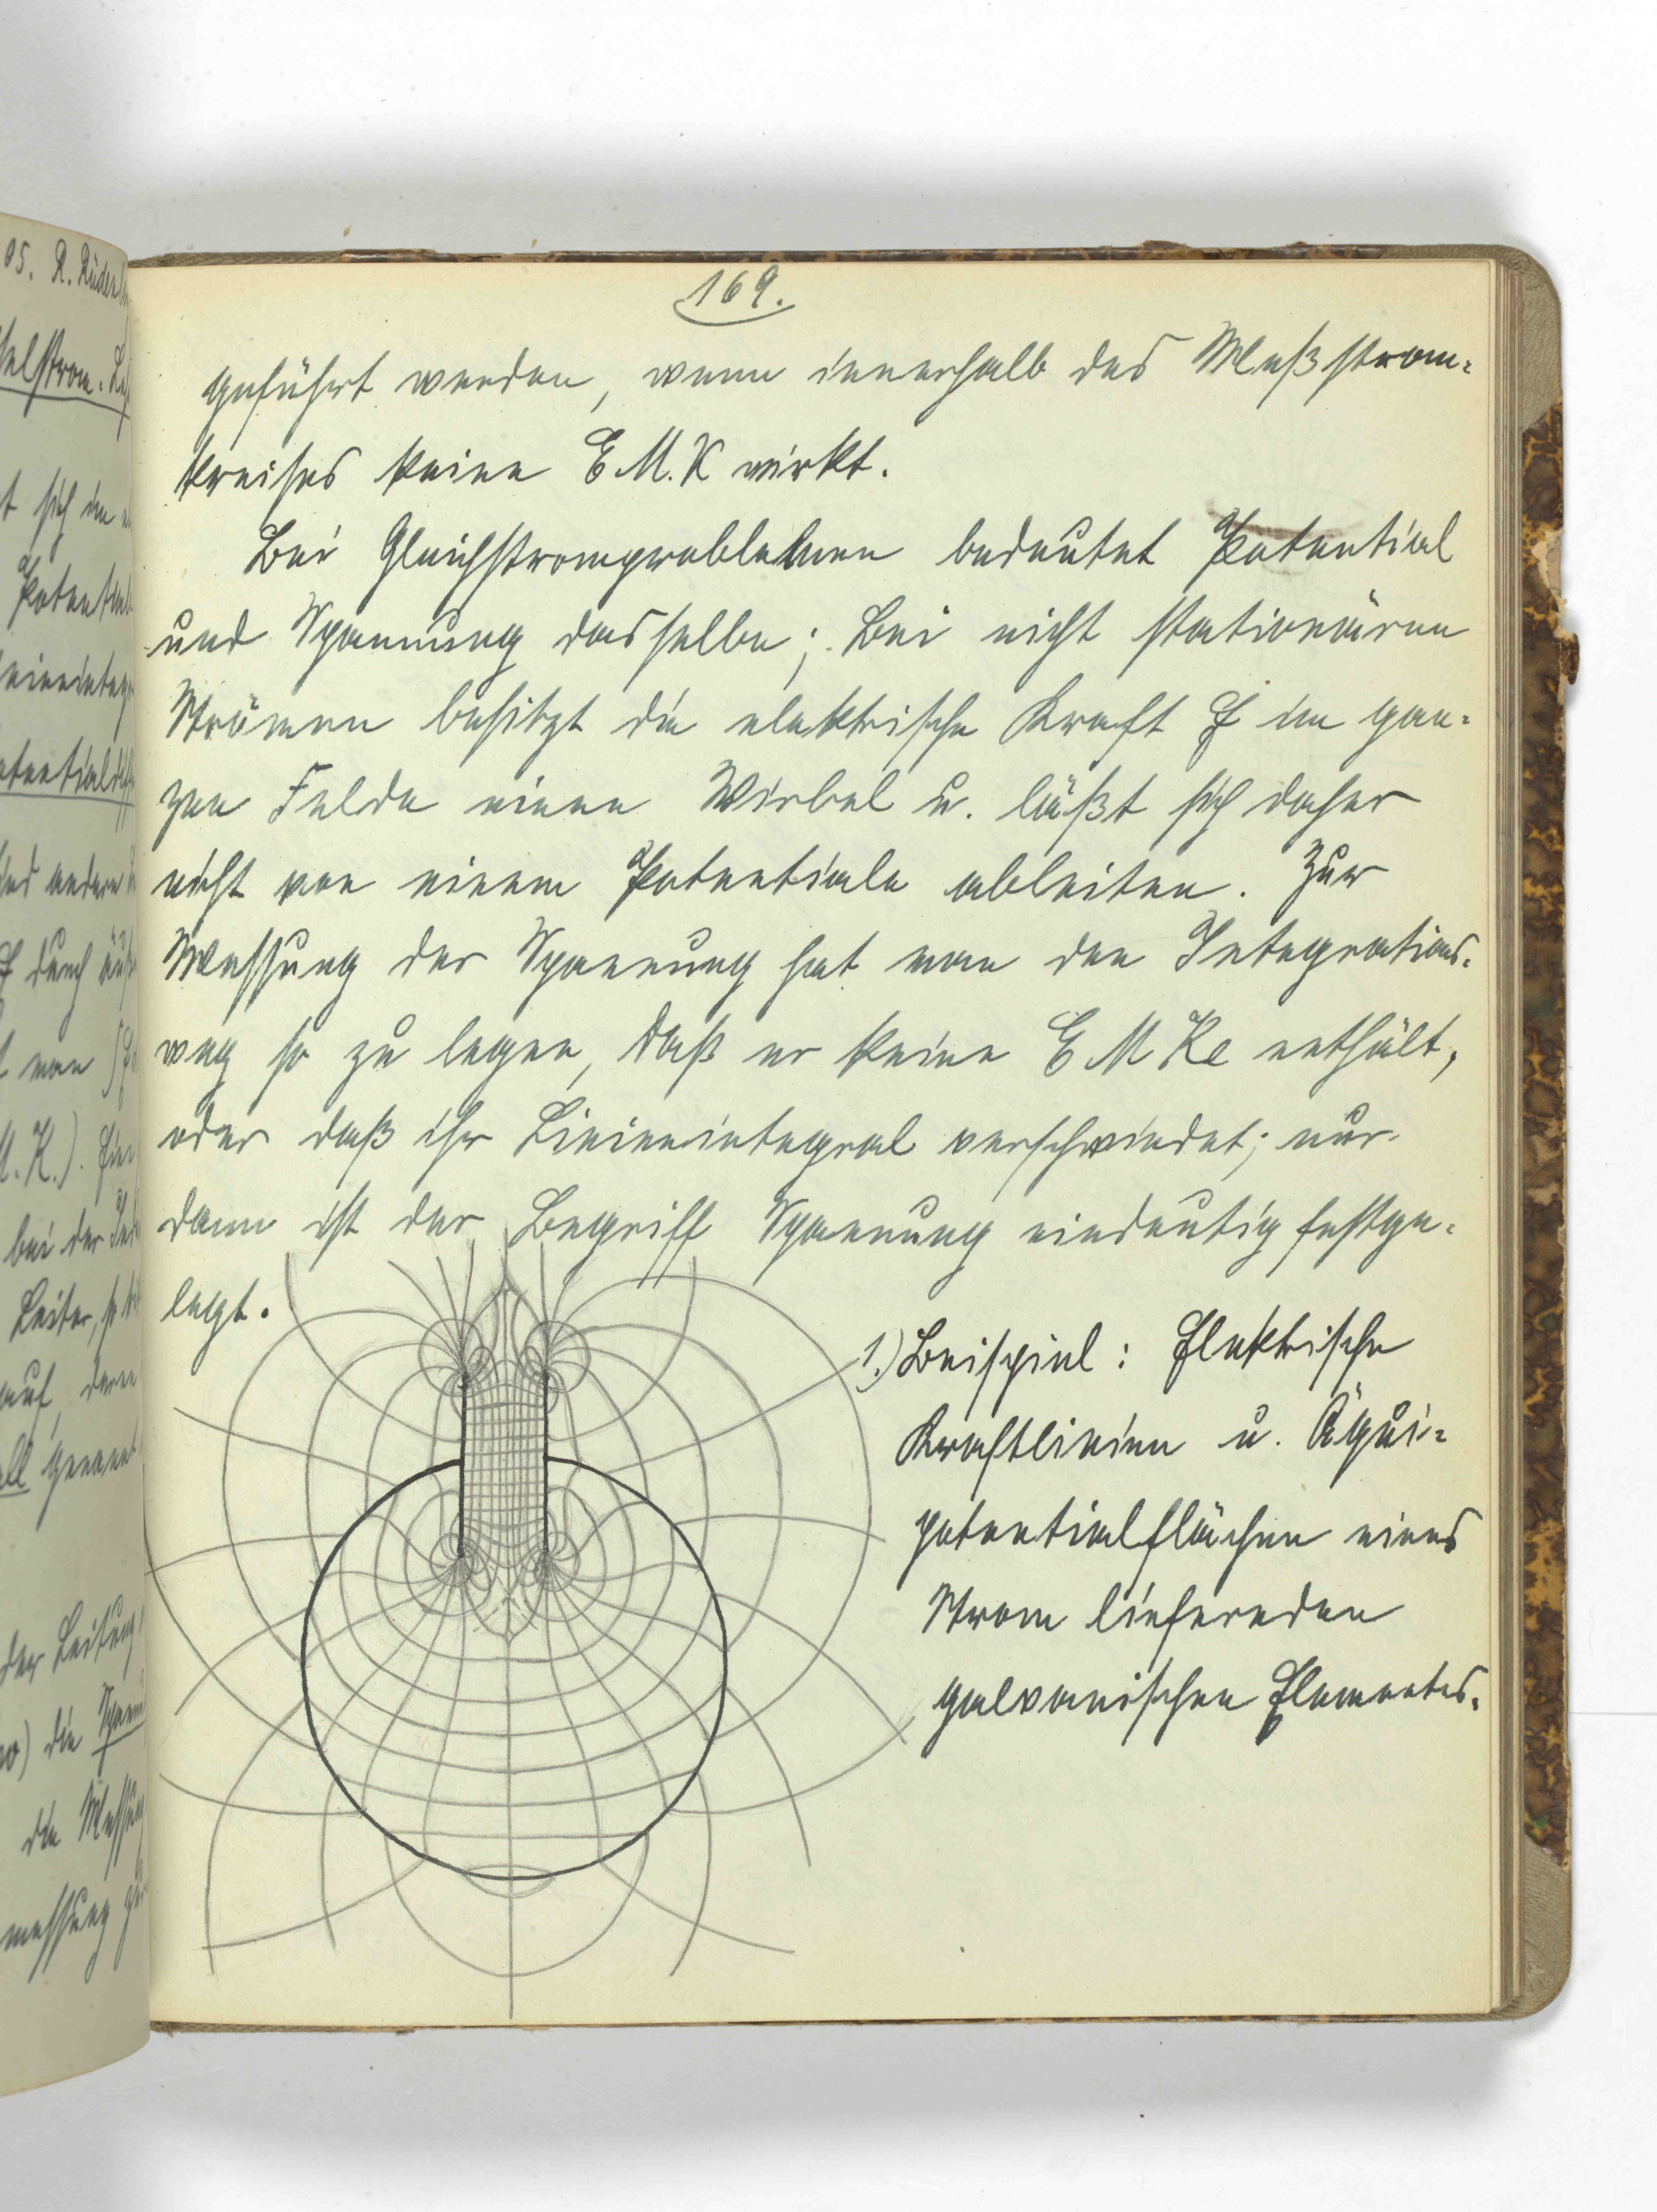 05. R. Rüden
t sich im
Potential
der Leitung
die
169.
geführt werden, wenn innerhalb des Meßstrom-
kreises keine E.M.K wirkt.
Bei Gleichstromproblemen bedeutet Potential
und Spannung dasselbe; Bei nicht stationären
Strömen besitzt die elektrische Kraft E im gan-
zen Felde einen Wirbel u. läßt sich daher
nicht von einem Potentiale ableiten. Zur
Messung der Spannung hat man den Integrations-
weg so zu legen, daß er keine E M Ke enthält,
oder daß ihr Linienintegral verschwindet; nur
dann ist der Begriff Spannung eindeutig festge-
legt.
1.) Beispiel: Elektrische
Kraftlinien u. Äqui-
potentialflächen eines
Strom liefernden
galvanischen Elementes.